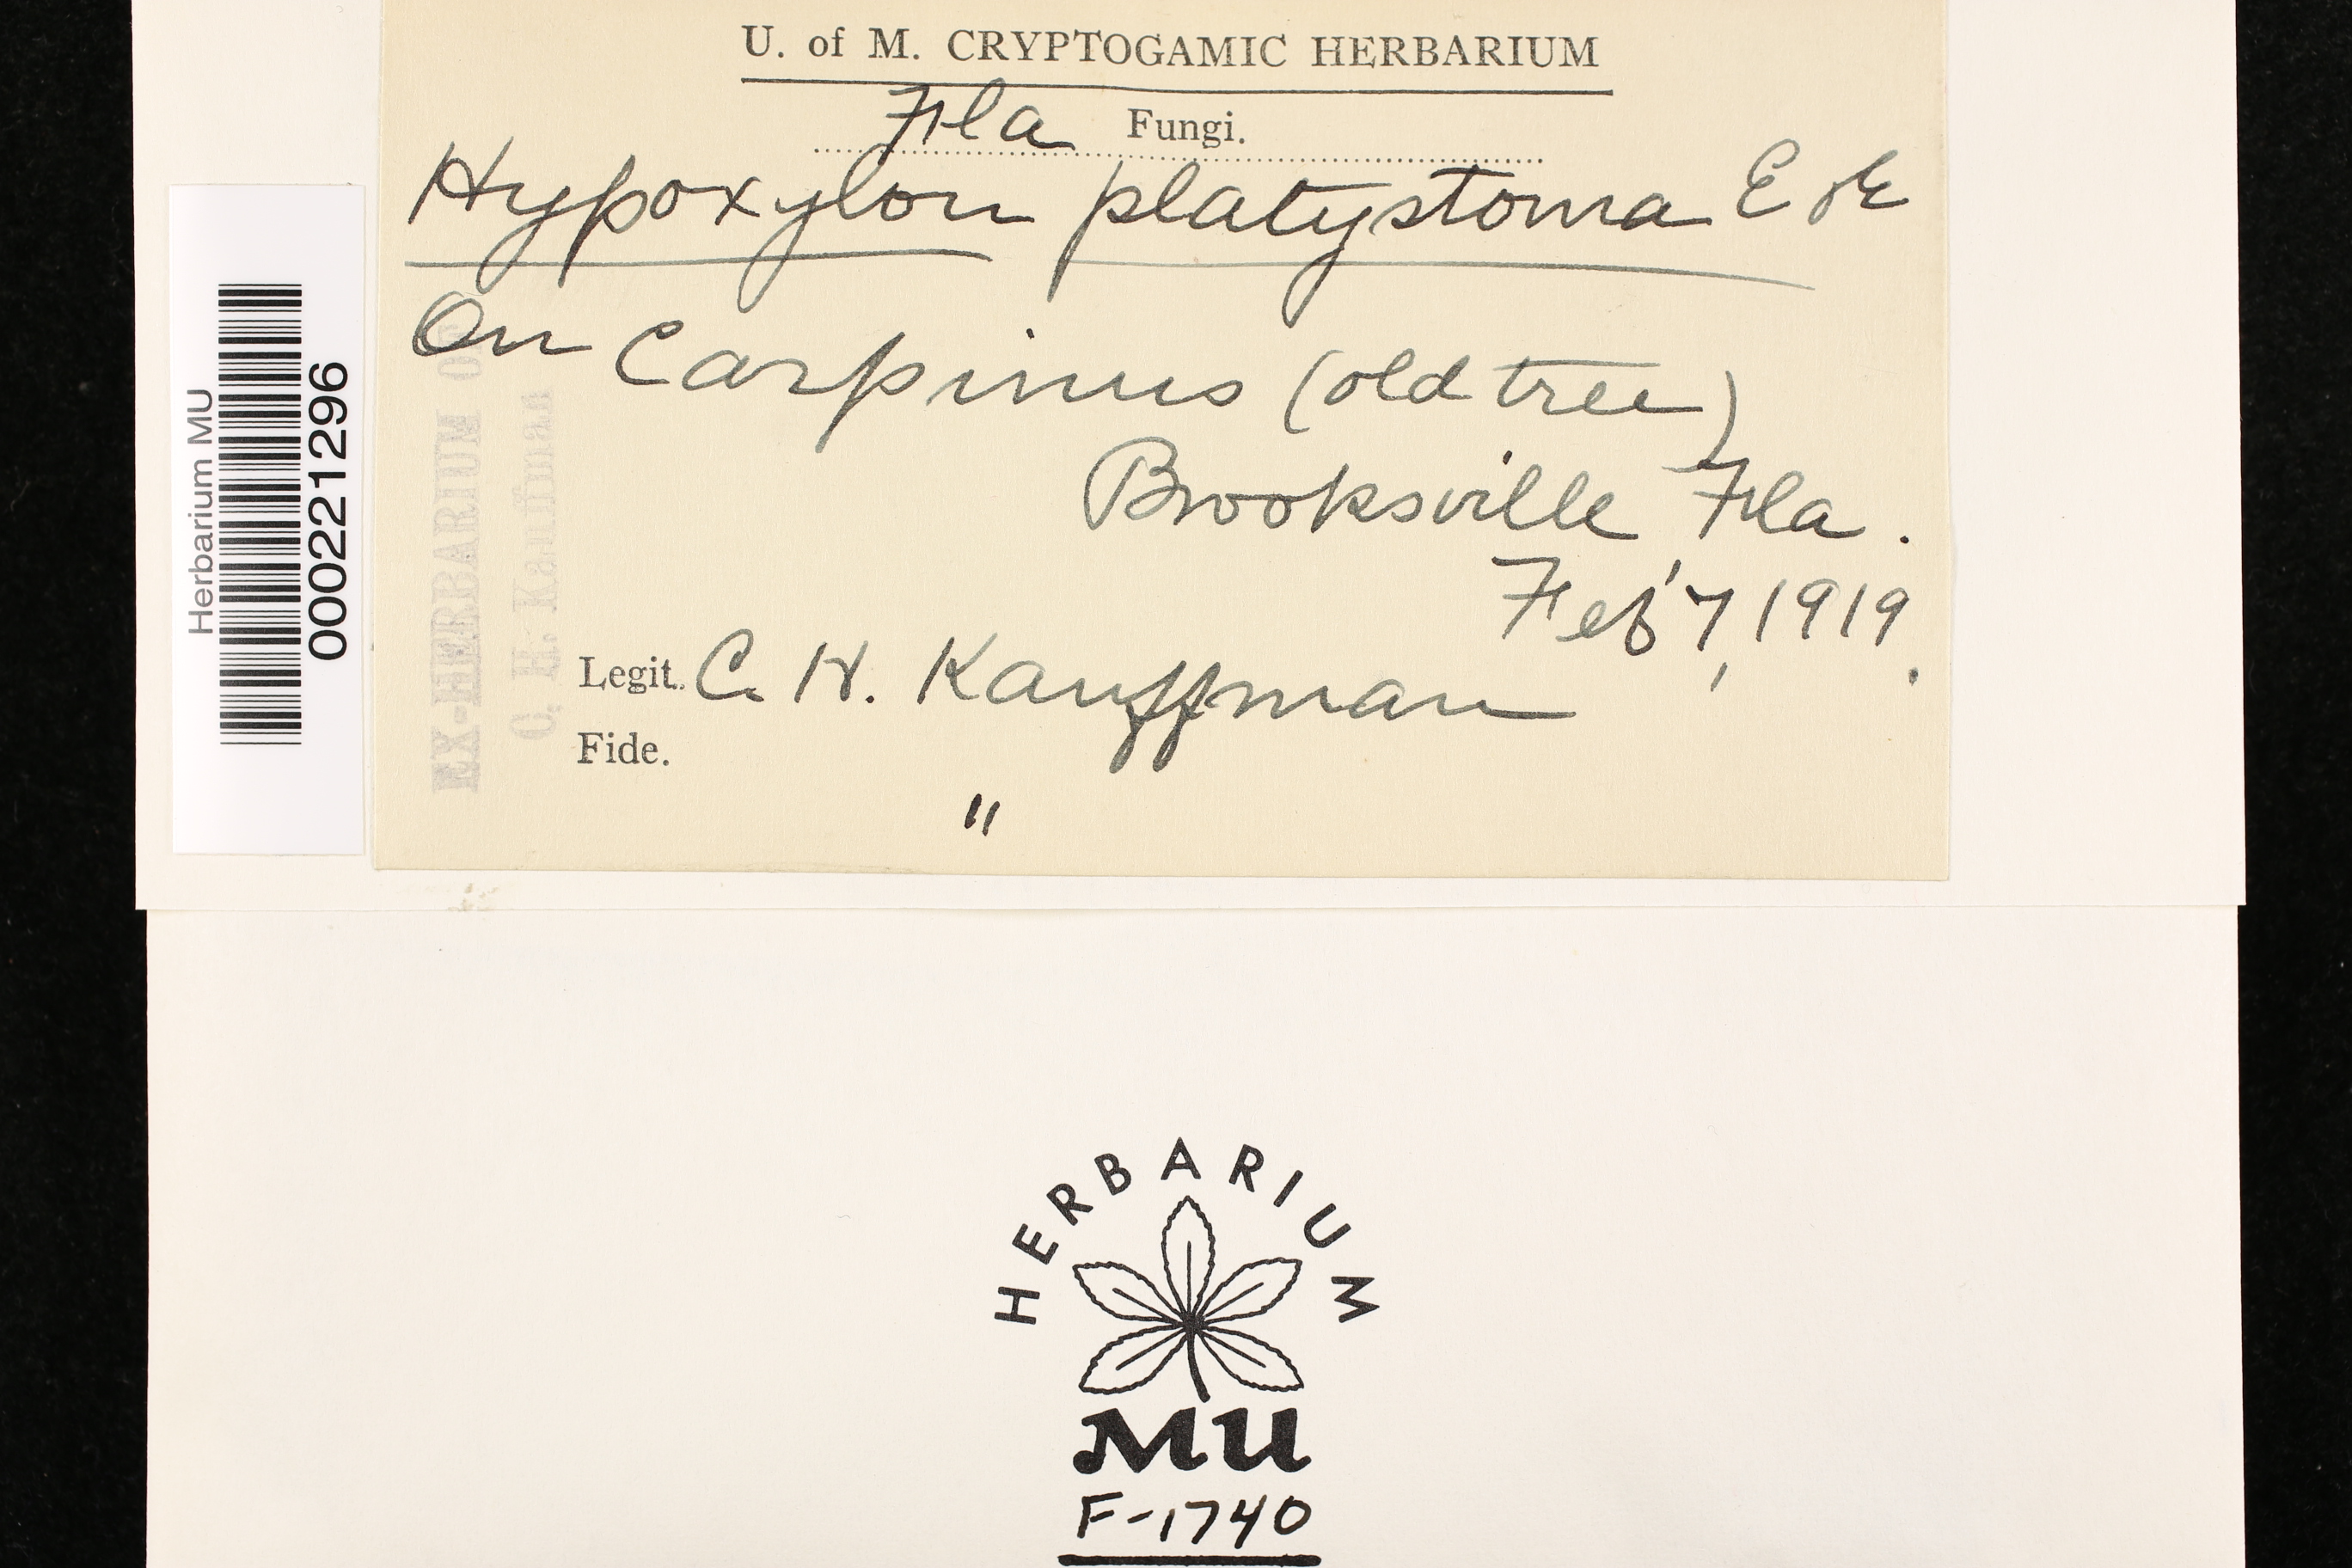 U. of M. CRYPTOGAMIC HERBARIUM
Fla Fungi.
Hypoxylon platystoma E & E
On Carpinus (old tree)
Brooksville Fla.
Feb 7, 1919.
Legit. C. H. Kauffman
Fide.
"
EX-HERBARIUM OF
C. H. Kauffman
Herbarium MU
000221296
HERBARIUM
MU
F-1740